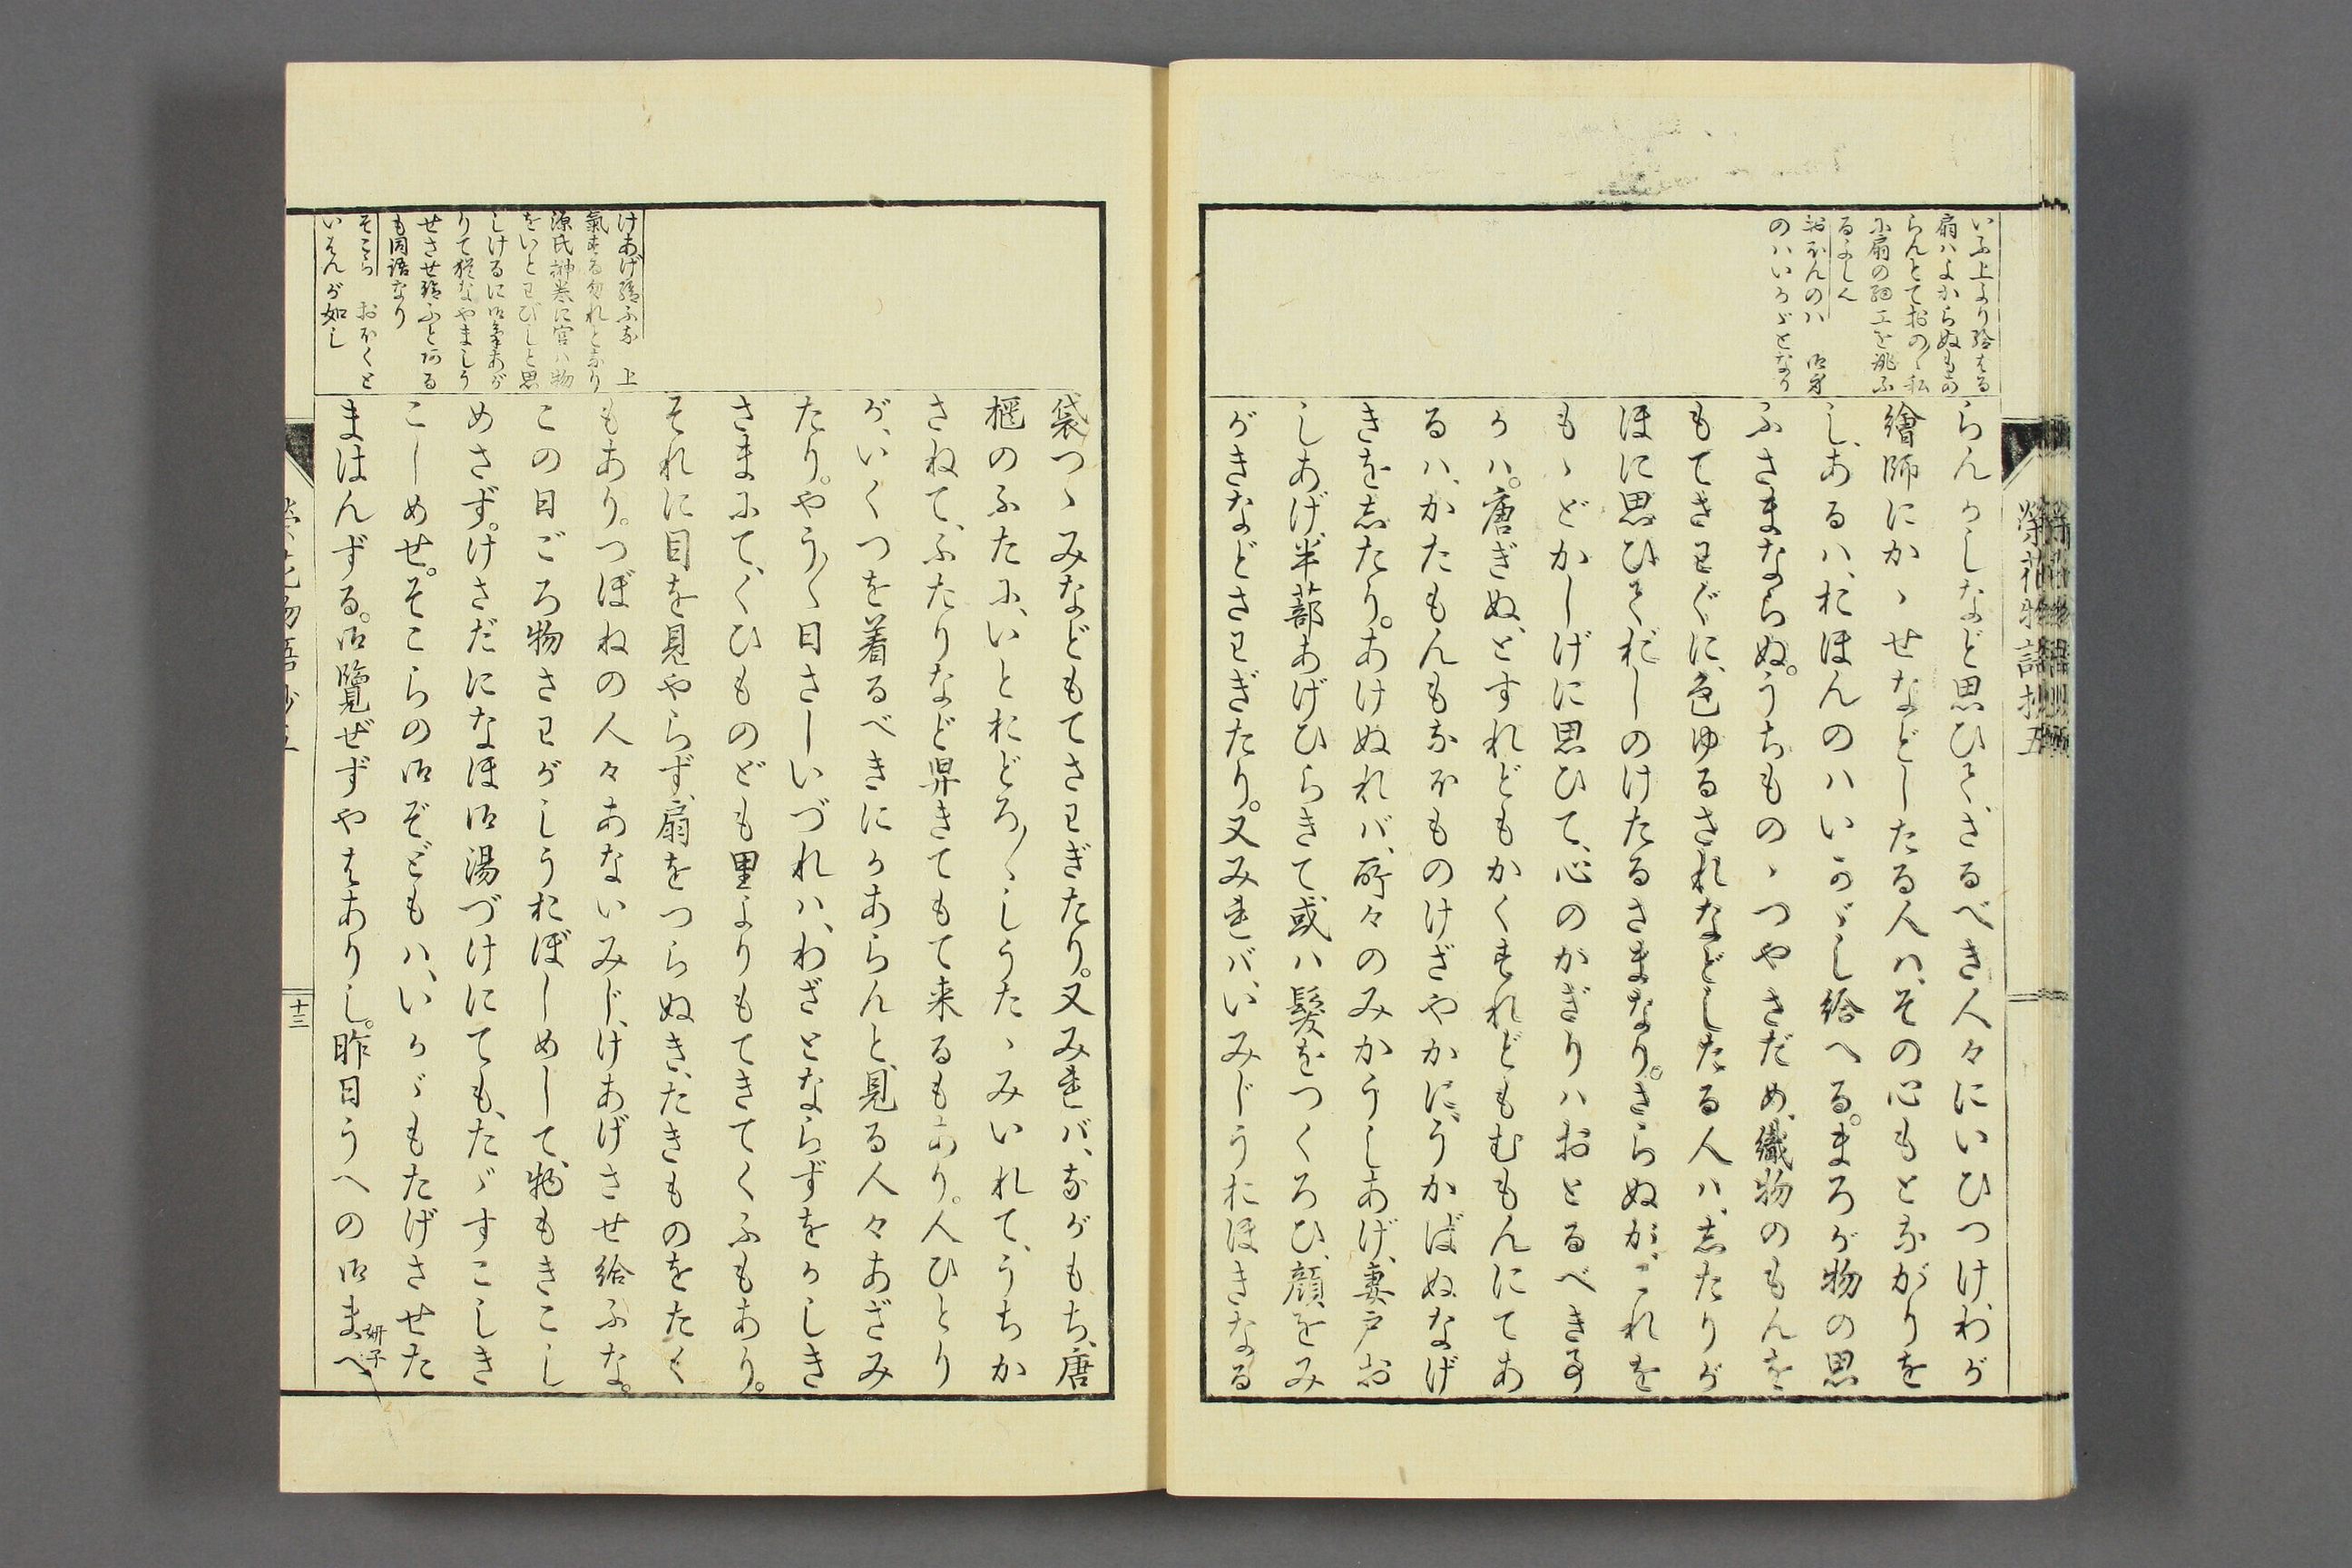 いふ上より給はる
扇ハよからぬもの
らんとておの〳〵私
に扇の細工を挑ふ
るよし也
おほんのハ　御身
のハいかゞとなり
らんかしなど思ひて、さるべき人々にいひつけ、わが
繪師にかゝせなどしたる人ハ、その心もとながりを
し、あるハ、おほんのハいかゞし給へる。まろが物の思
ふさまならぬ。うちものゝつやさだめ、織物のもんを
もてさわぐに、色ゆるされなどしたる人ハ、志たりが
ほに思ひくだしのけたるさまなり。さらぬが、これを
もゝどかしげに思ひて、心のかぎりハおとるべき事
かハ。唐ぎぬ、とすれどもかくすれどもむもんにてあ
るハ、かたもんもなほものけざやかに、うかばぬなげ
きを志たり。あけぬれバ、所々のみかうしあげ、妻戸お
しあげ、半蔀あげひらきて、或ハ髮をつくろひ、顔をみ
がきなどさわぎたり。又みれバ、いみじうおほきなる
榮花物語抄五
けあげ給ふな　上
氣する勿れと也
源氏榊卷に宮ハ物
をいとわびしと思
しけるに御氣あが
りて猶なやましう
せさせ給ふとある
も同語なり
そこら　おほくと
いはんが如し
袋つゝみなどもてさわぎたり。又みれバ、ながもち、唐
櫃のふたに、いとおどろ〳〵しうたゝみいれて、うちか
さねて、ふたりなど舁きてもて来るもあり。人ひとり
が、いくつを着るべきにかあらんと、見る人々あざみ
たり。やう〳〵日さしいづれハ、わざとならずをかしき
さまにて、くひものども里よりもてきてくふもあり。
それに目を見やらず、扇をつらぬき、たきものをたく
もあり。つぼねの人々あないみじ、けあげさせ給ふな。
この日ごろ物さわがしうおぼしめして、物もきこし
めさず。けさだになほ御湯づけにても、たゞすこしき
こしめせ。そこらの御ぞどもハ、いかゞもたげさせた
まはんずる。御覽ぜずやはありし。昨日うへの御まへ
妍子
十三